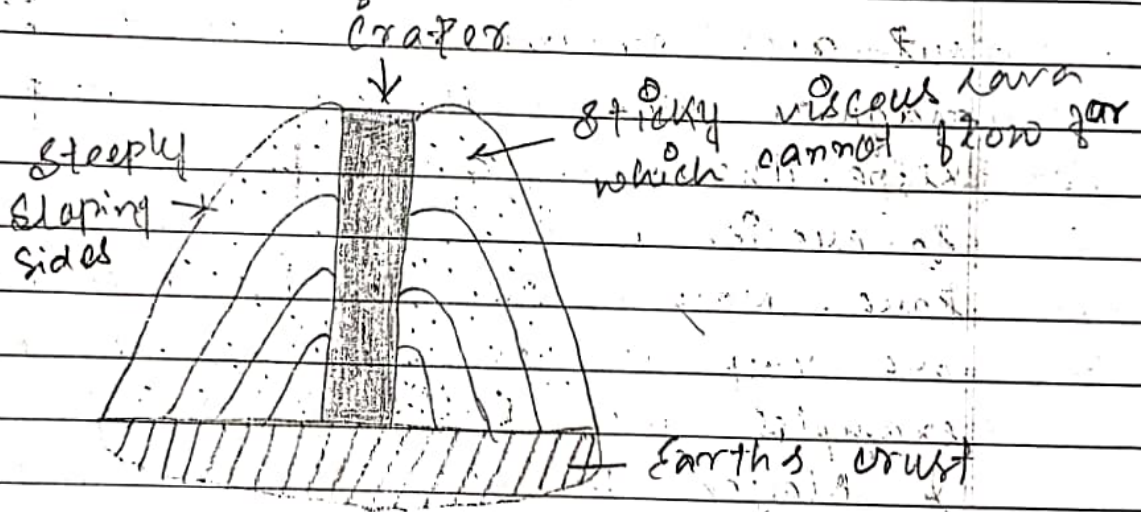 Crater
sticky viscous Lava
which cannot flow far
Steeply
Sloping
Sides
Earth's crust